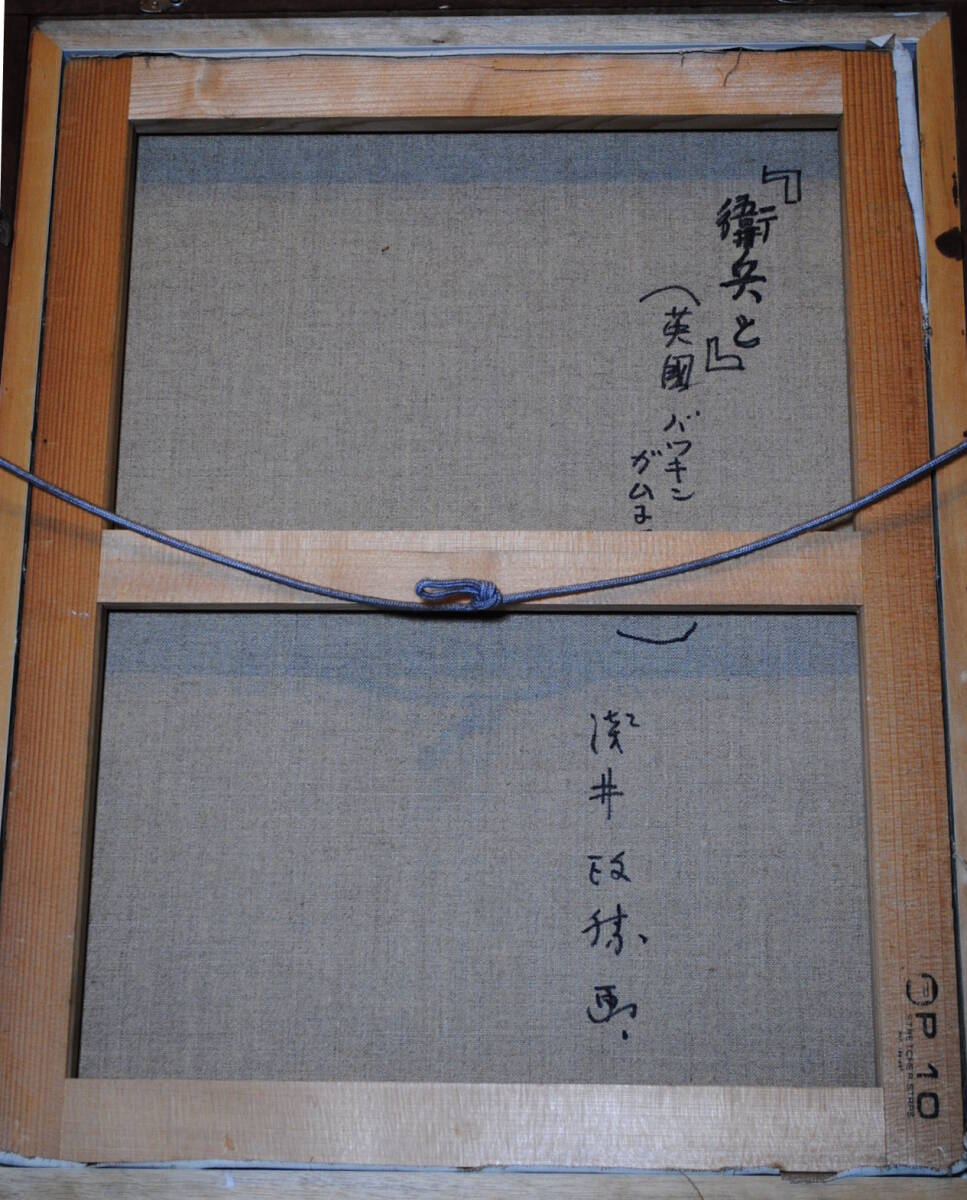 『衛兵と』
（英國バッキン
ガムユ
）
淺井政勝画
P10
STRETCHER STRIPS